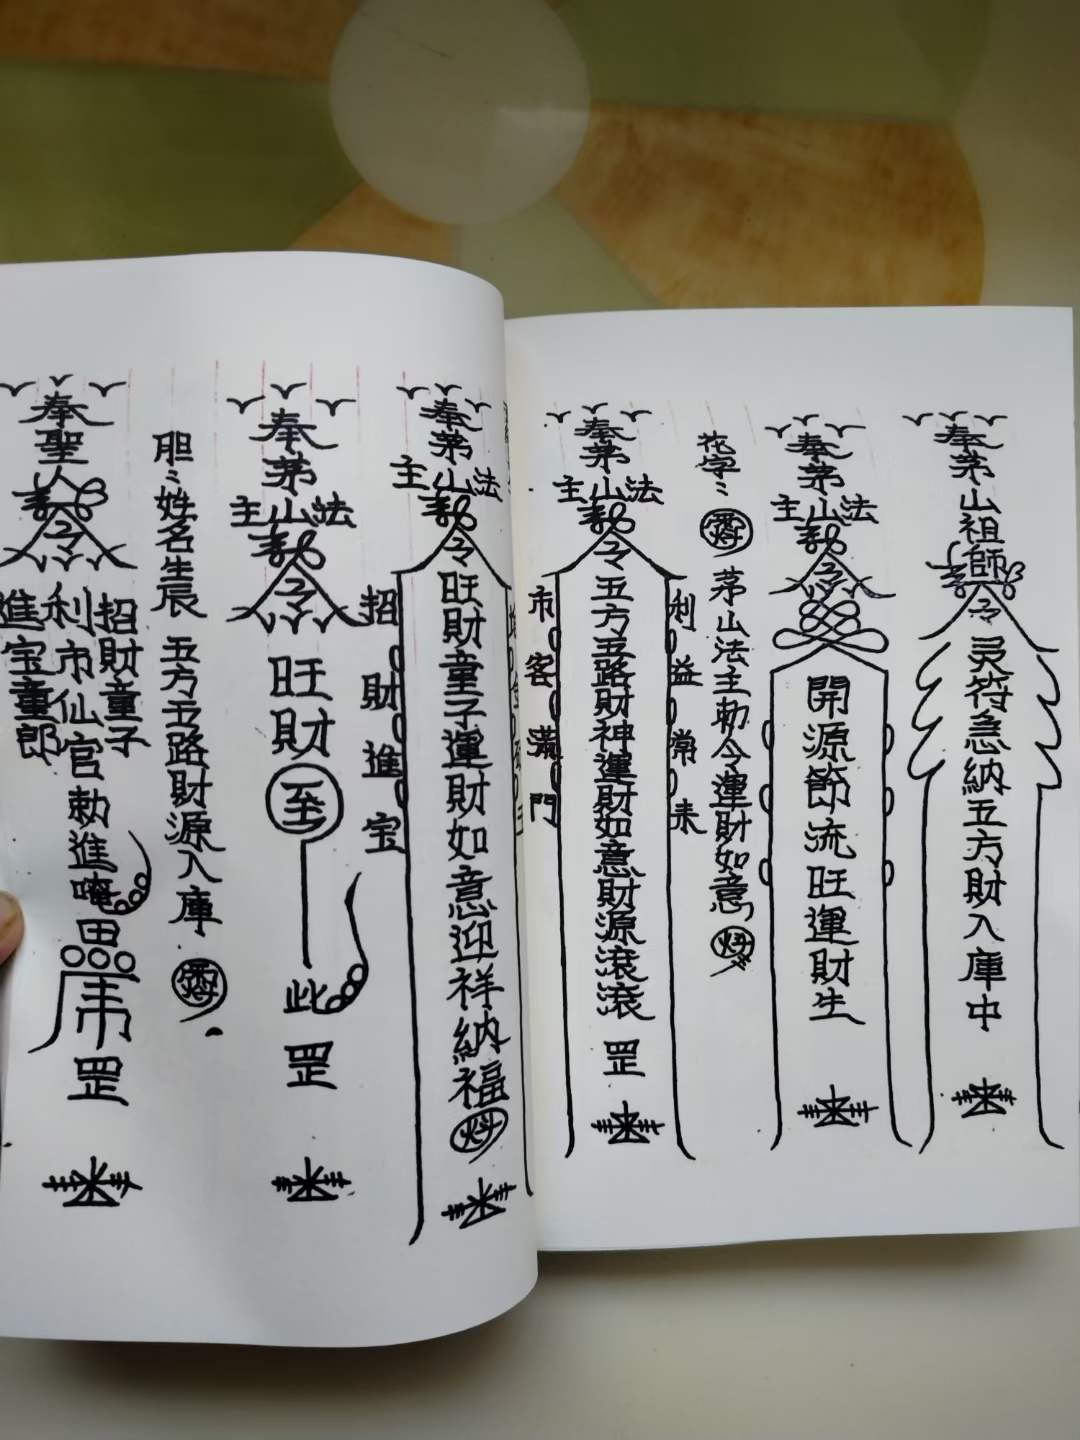 奉茅山祖師
令
灵符急納五方財入庫中
奉茅山法主
勅令
開源節流旺運財生
花字:
茅山法主勅令運財如意
奉茅山法主
勅令
五方五路財神運財如意財源滾滾
罡
利益常来
市客滿門
奉茅山法主
勅令
旺財童子運財如意迎祥納福
招財進宝
奉茅山法主
勅令
旺財
至
此
罡
胆:姓名生辰 五方五路財源入庫
奉聖人
勅令
招財童子
利市仙官勅進唵
進宝童郎
罡